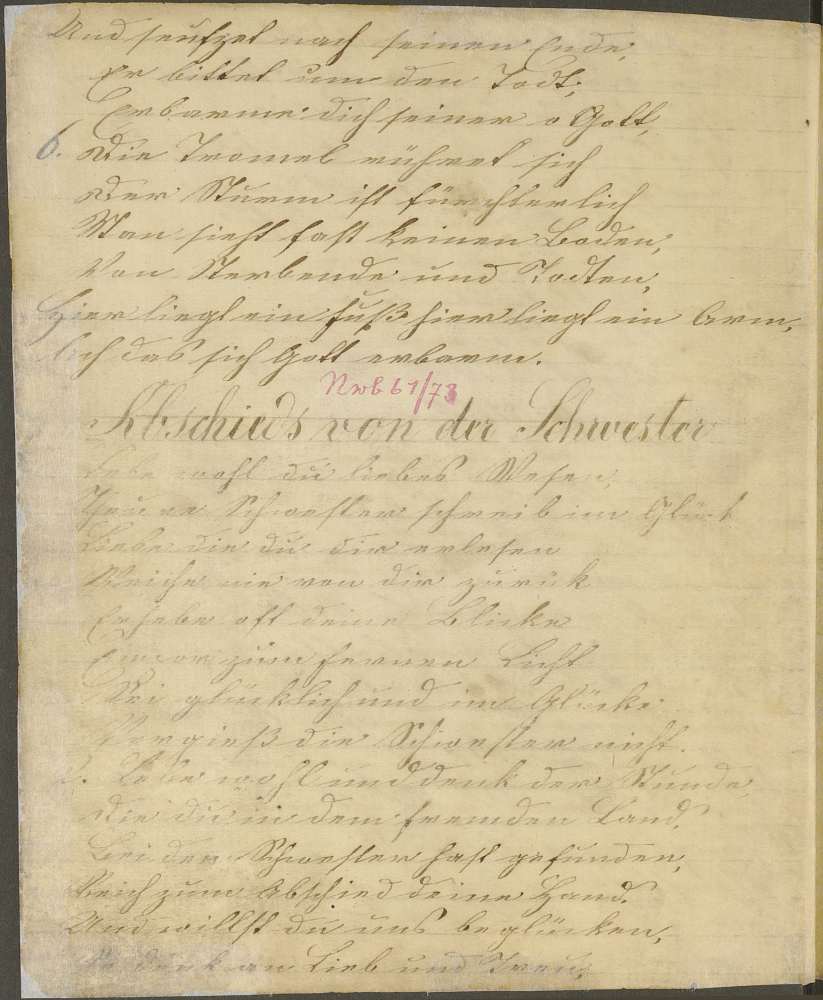 Und seufzet nach seinen Ende,
Er bittet um den Todt;
Erbarme dich seiner o Gott,
6. Die Tromel rühret sich
Der Sturm ist fürchterlich
Man sieht fast keinen Boden,
Von Sterbende und Todten,
Hier liegt ein Fuß hier liegt ein Arm,
Ach das sich Gott erbarm.
Abschieds von der Schwester
Lebe wohl du liebes Wesen,
Theure Schwester schreib im Glück
Liebe die du dir erlesen
Weiche nie von dir zurück
Erhebe oft deine Blicke
Empor zum fernen Licht
Sei glücklich und im Glücke
Vergieß die Schwester nicht.
2. Lebe wohl und denk der Stunde,
Die du in dem fremden Land,
Bei der Schwester hast gefunden,
Reich zum Abschied deine Hand.
Und willst du uns beglücken,
So denk an Lieb und Treu,